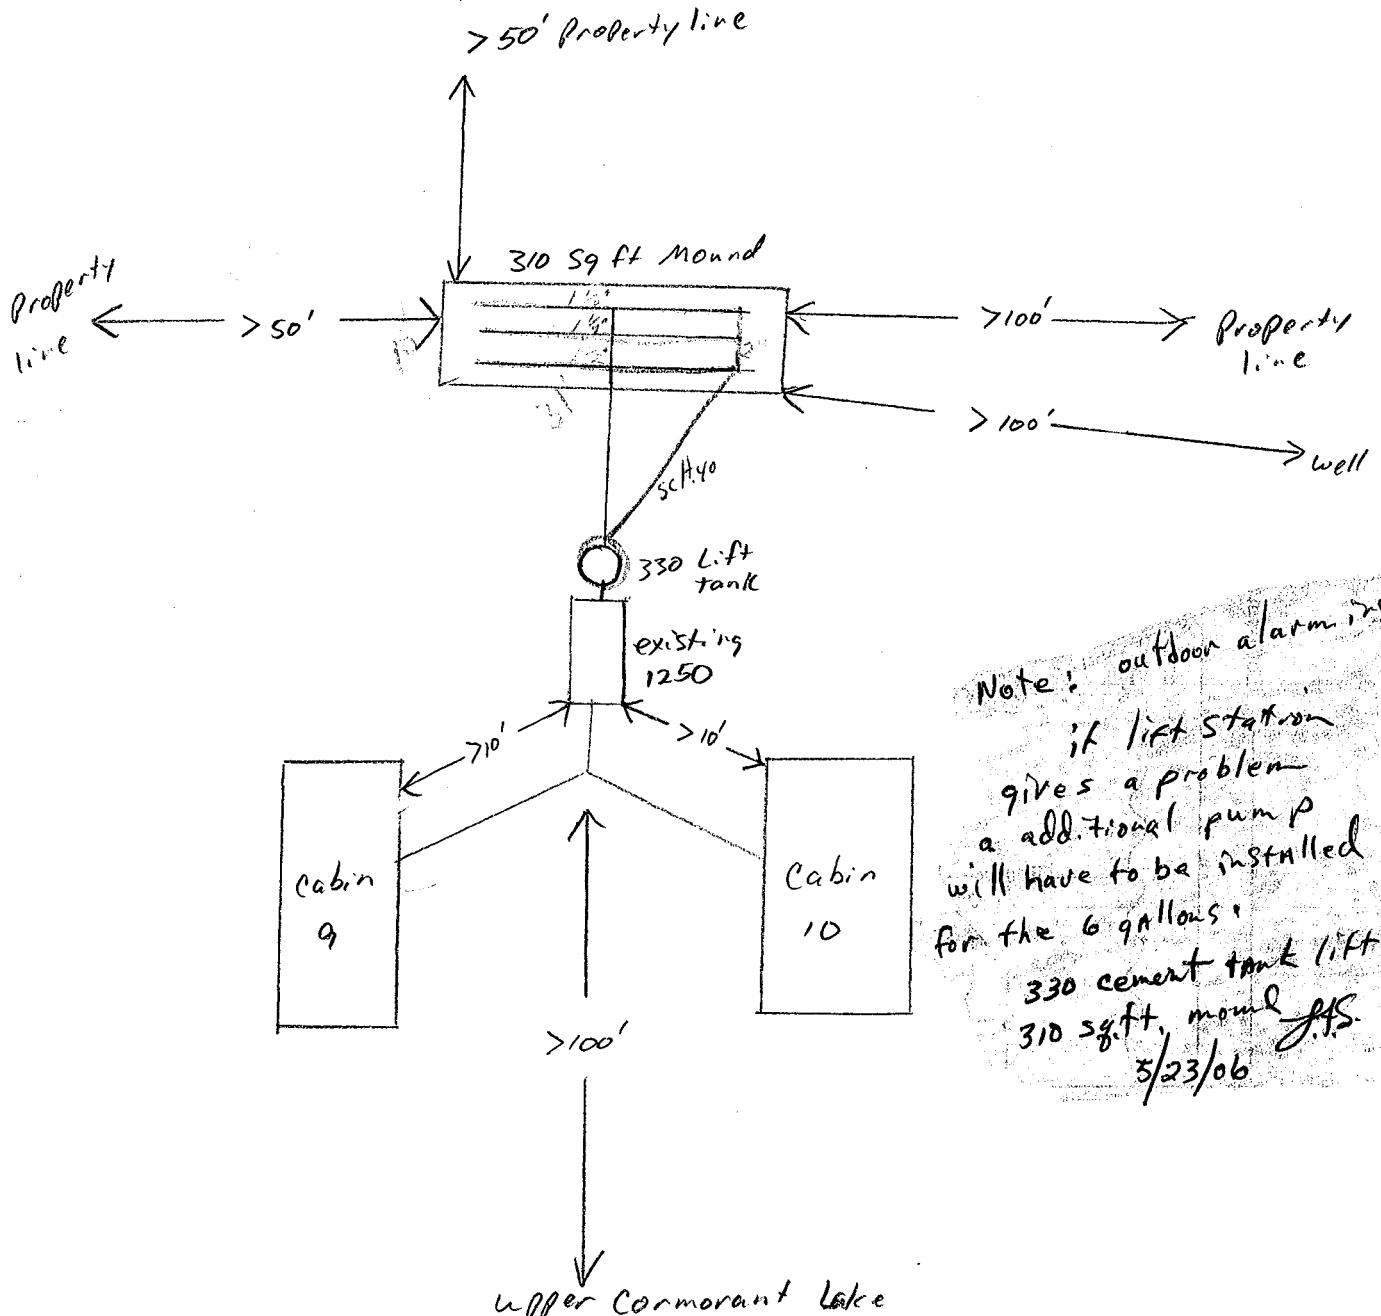 > 50' Property line
310 Sq ft Mound
Property
line
> 50'
>100'
Property
line
>100'
well
scH.40
330 Lift
tank
existing
1250
>10'
>10'
Cabin
9
Cabin
10
>100'
upper Cormorant Lake
Note: outdoor alarm
if lift station
gives a problem
a additional pump
will have to be installed
for the 6 gallons.
330 cement tank lift
310 sq.ft. mound
5/23/06